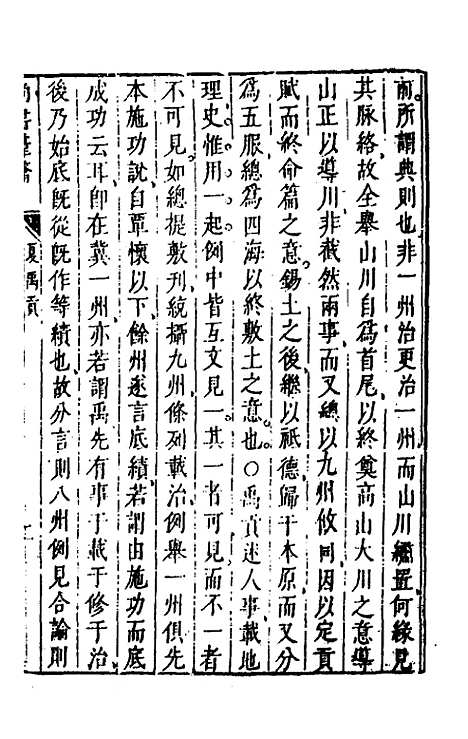 前所謂典則也非一州治更治一州而山川繡置何緣見
其脉絡故全舉山川自爲首尾以終奠高山大川之意導
山正以導川非截然兩事而又總以九州攸同因以定貢
賦而終命篇之意錫土之後繼以祗德歸于本原而又分
爲五服總爲四海以終敷土之意也○禹貢述人事載地
理史惟用一起例中皆互文見一其一者可見而不一者
不可見如總提敷刋統攝九州條列載治例舉一州俱先
本施功說自覃懷以下餘州逐言底績若謂由施功而底
成功云耳即在冀一州亦若謂禹先有事于載于修于治
後乃始底旣從旣作等績也故分言則八州例見合論則
夏禹貢